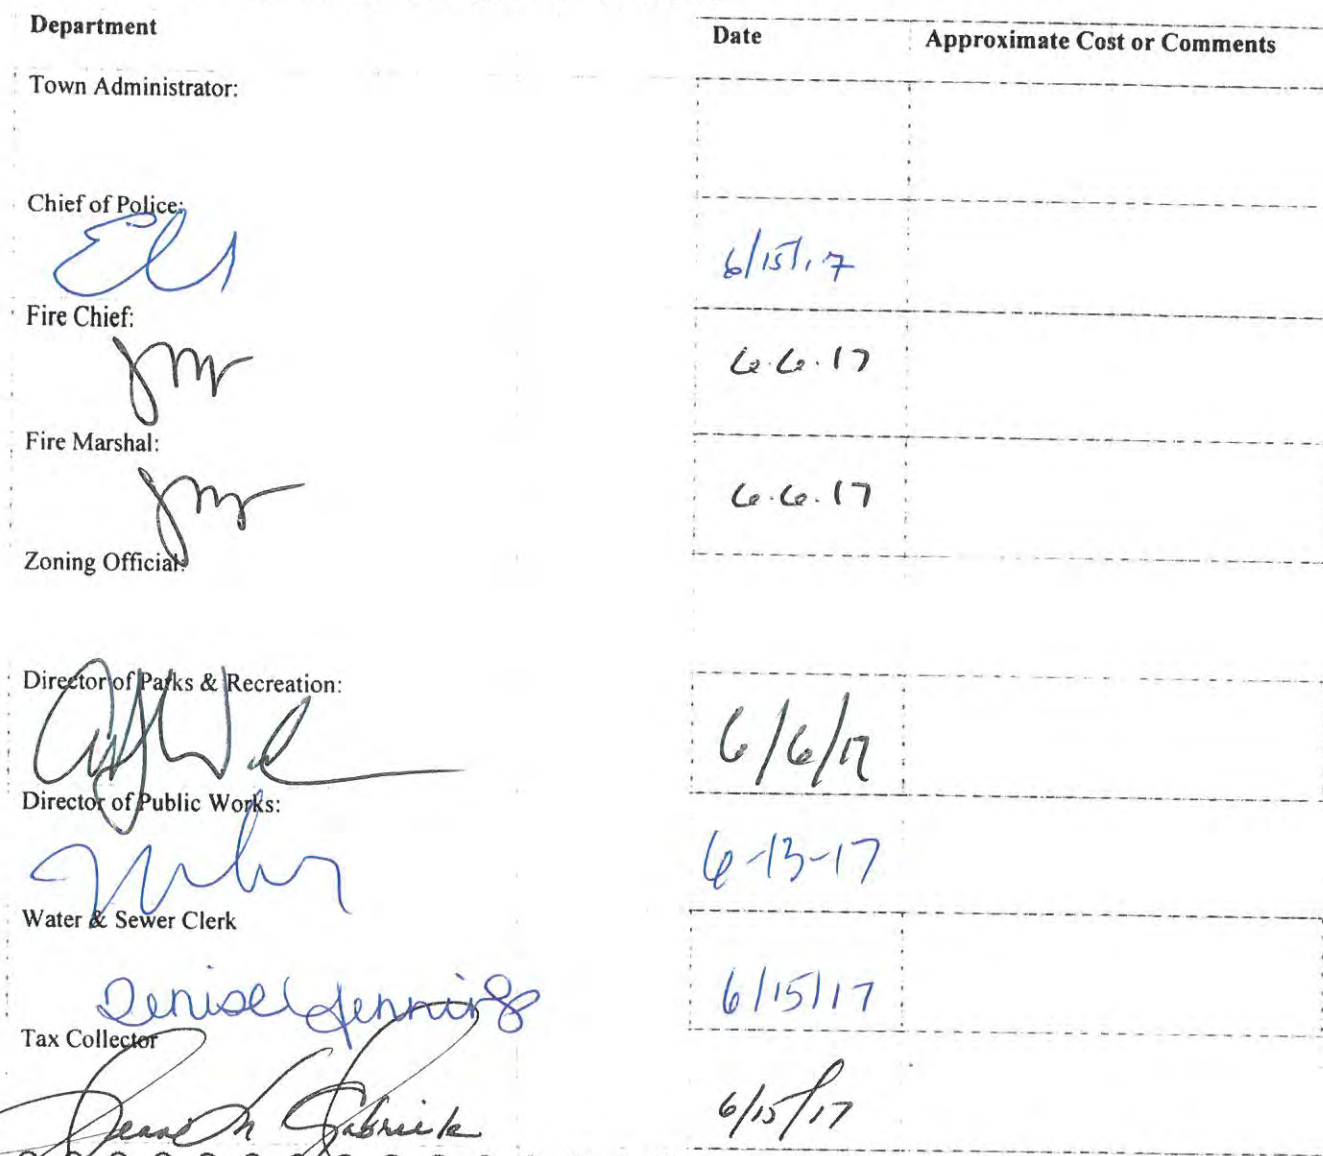 Department Date Approximate Cost or Comments
Town Administrator:
Chief of Police:
6/15/17
Fire Chief:
6.6.17
Fire Marshal:
6.6.17
Zoning Official:
Director of Parks & Recreation:
6/6/17
Director of Public Works:
6-13-17
Water & Sewer Clerk
Denise Jennings 6/15/17
Tax Collector
6/15/17